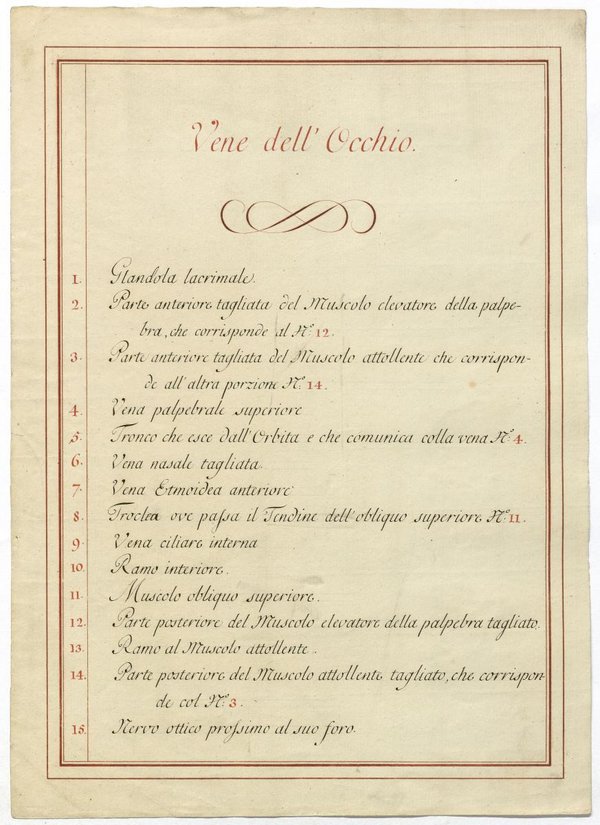 Vene dell' Occhio.
1. Glandola lacrimale.
2. Parte anteriore tagliata del Muscolo elevatore della palpe-
bra, che corrisponde al N.º 12.
3. Parte anteriore tagliata del Muscolo attollente che corrispon-
de all'altra porzione N.º 14.
4. Vena palpebrale superiore
5. Tronco che esce dall'Orbita e che comunica colla vena N.º 4.
6. Vena nasale tagliata.
7. Vena Etmoidea anteriore
8. Troclea ove paſsa il Tendine dell'obliquo superiore N.º 11.
9. Vena ciliare interna
10. Ramo interiore.
11. Muscolo obliquo superiore.
12. Parte posteriore del Muscolo elevatore della palpebra tagliato.
13. Ramo al Muscolo attollente.
14. Parte posteriore del Muscolo attollente tagliato, che corrispon-
de col N.º 3.
15. Nervo ottico proſsimo al suo foro.